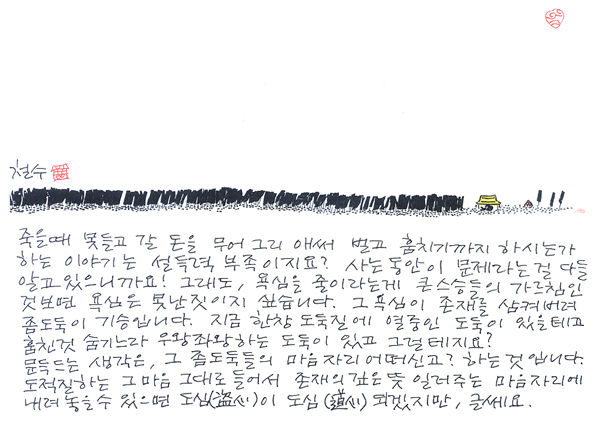 철수
죽을때 못들고 갈 돈을 무어 그리 애써 벌고 훔치기까지 하시는가
하는 이야기는 설득력 부족이지요? 사는동안이 문제라는걸 다들
알고있으니까요! 그래도, 욕심을 줄이라는게 큰스승들의 가르침인
것보면 욕심은 못난짓이지 싶습니다. 그 욕심이 존재를 삼켜버려
좀도둑이 기승입니다. 지금 한창 도둑질에 열중인 도둑이 있을테고
훔친것 숨기느라 우왕좌왕하는 도둑이 있고 그럴테지요?
문득드는 생각은, 그 좀도둑들의 마음자리 어떠신고? 하는 것입니다.
도적질하는 그 마음 그대로 들어서 존재의 깊은 뜻 일러주는 마음자리에
내려놓을수 있으면 도심(盜心)이 도심(道心) 되겠지만, 글쎄요.